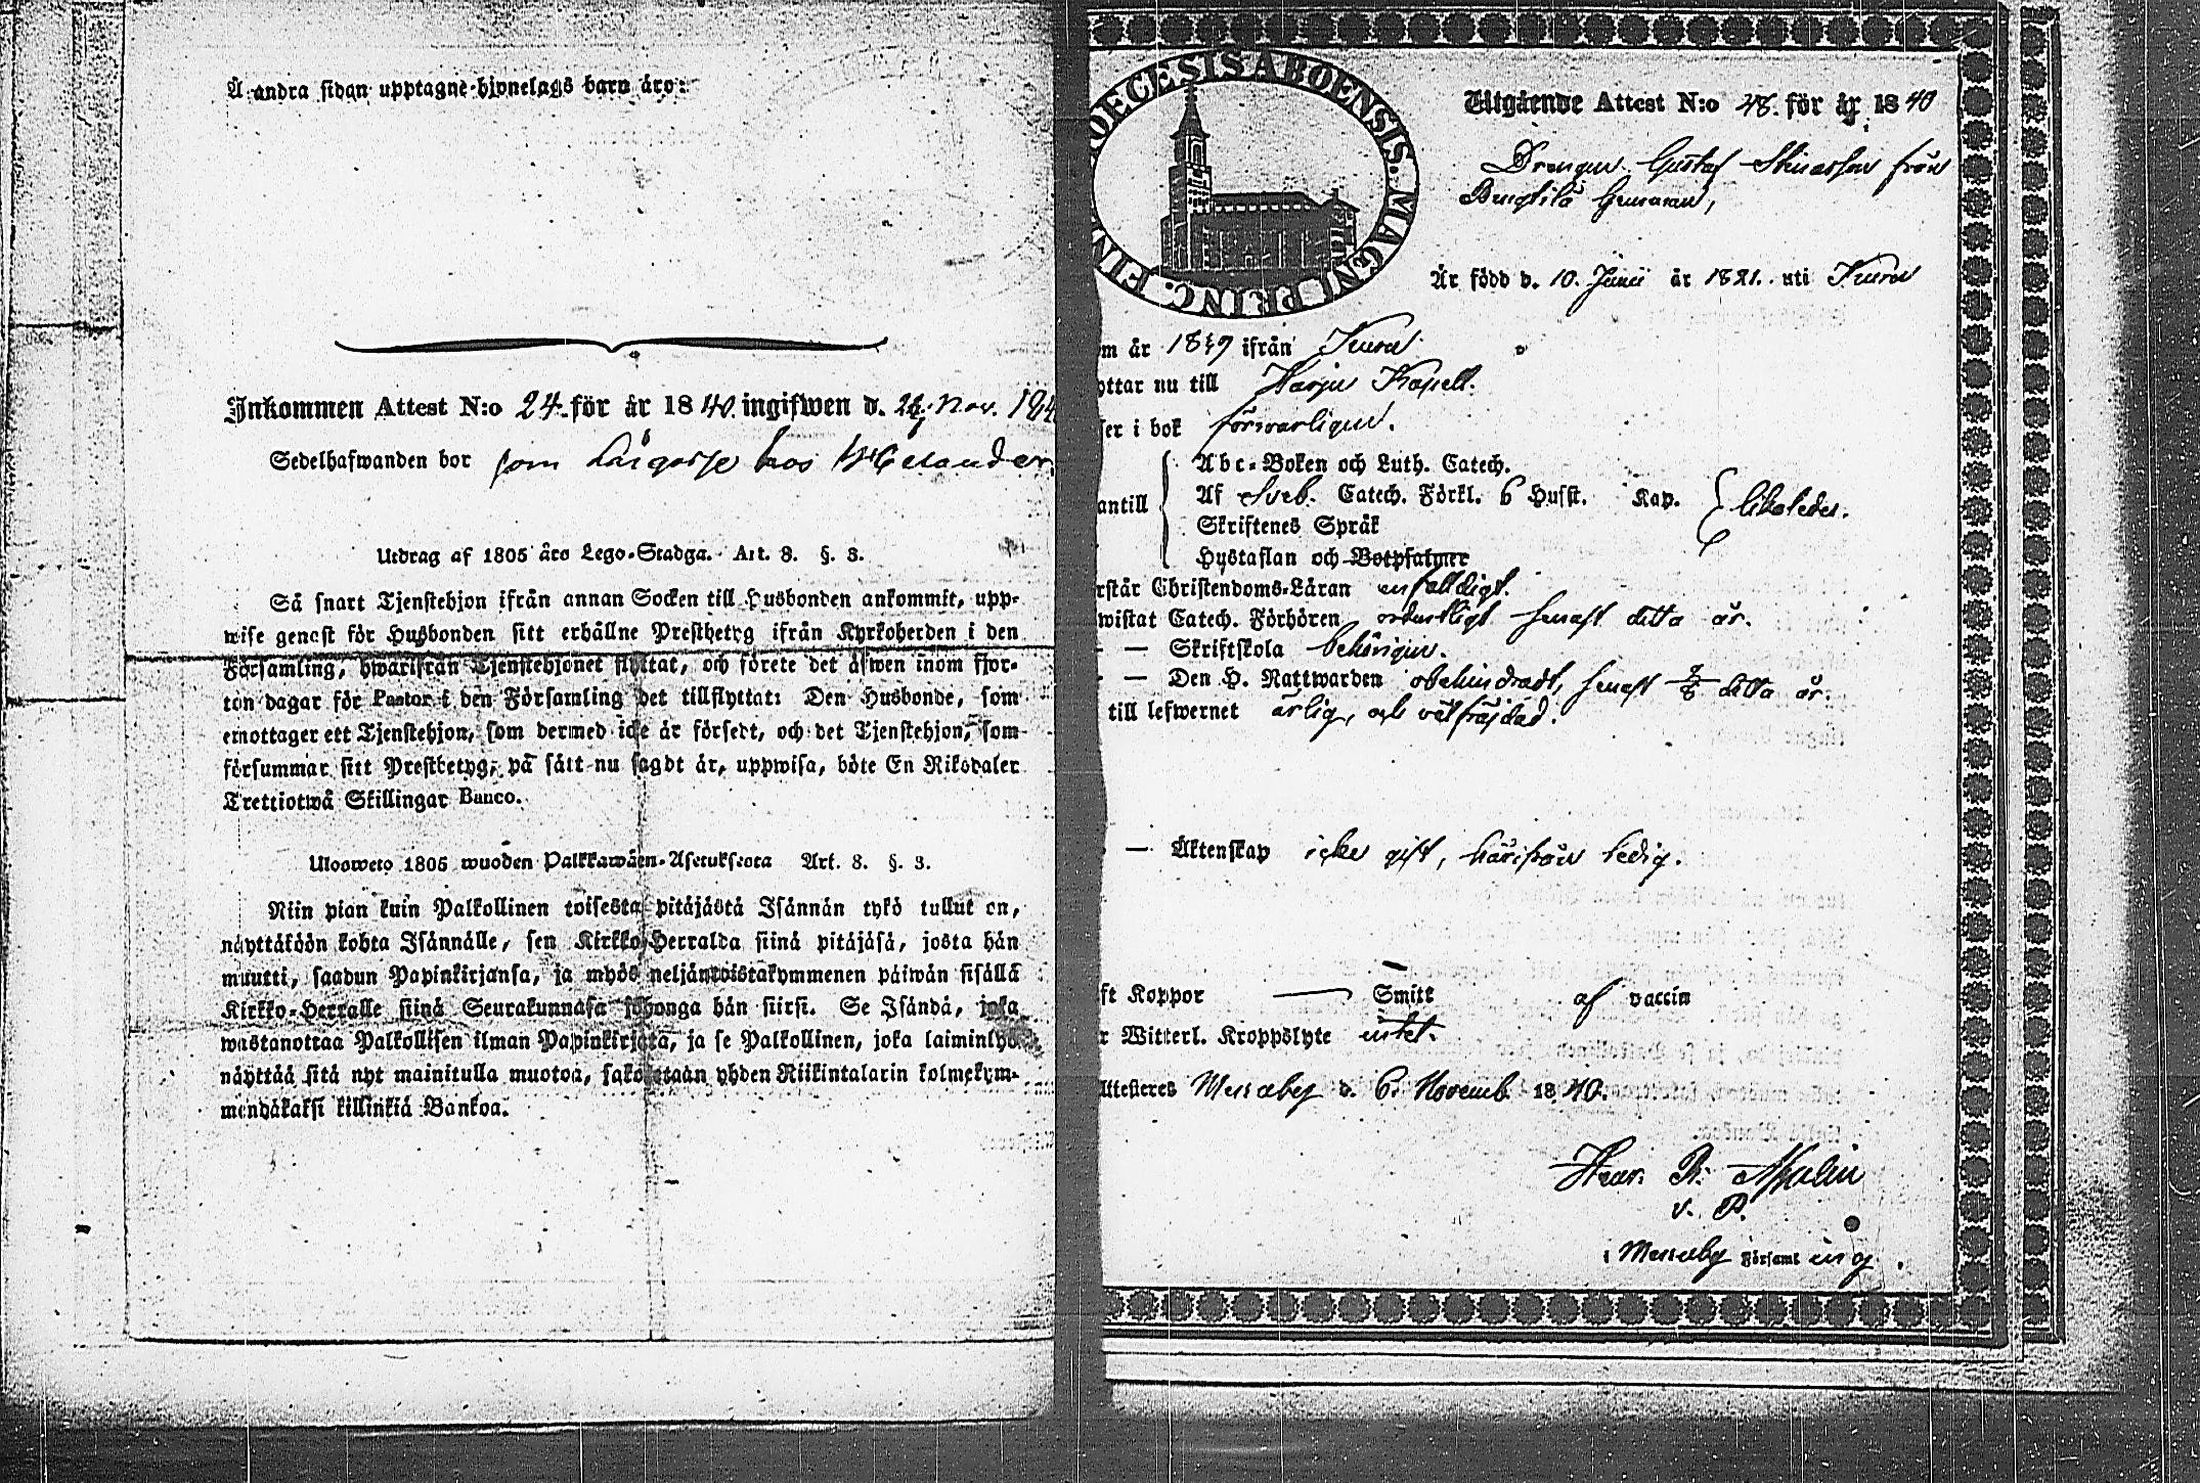 Å andra sidan upptagne hjonelags barn äro:
Inkommen Attest N:o 24. för år 1840. ingifwen d. Nov. 184
Sedelhafwanden bor som hos
Utdrag af 1805 års Lego-Stadga. Art. 8. §. 3.
Så snart Tjenstehjon ifrån annan Socken till Husbonden ankommit, upp-
wise genast för Husbonden sitt erhållne Prestbetyg ifrån Kyrkoherden i den
Församling, hwarifrån Tjenstehjonet flyttat, och förete det äfwen inom fjor-
ton dagar för Pastor i den Församling det tillflyttat: Den Husbonde, som
emottager ett Tjenstehjon, som dermed icke är försedt, och det Tjenstehjon, som
försummar sitt Prestbetyg, på sätt nu sagdt är, uppwisa, böte En Riksdaler
Trettiotwå Skillingar Banco.
Ulosweto 1805 wuoden Palkkawäen-Asetuksesta Art. 8. §. 3.
Niin pian kuin Palkollinen toisesta pitäjästä Isännän tykö tullut on,
näyttäköön kohta Isännälle, sen Kirkko-Herralda siinä pitäjäsä, josta hän
muutti, saadun Papinkirjansa, ja myös neljäntoistakymmenen päiwän sisällä
Kirkko-Herralle siinä Seurakunnasa johonga hän siirsi. Se Isändä, joka
wastanottaa Palkollisen ilman Papinkirjata, ja se Palkollinen, joka laiminlyö
näyttää sitä nyt mainitulla muotoa, sakotetaan yhden Riikintalarin kolmekym-
mendäkaksi killinkiä Bankoa.
DIOECESIS ABOENSIS. MAGNI PRINC. FINL
Utgående Attest N:o 48. för år 1840
Drengen Gustaf från
Är född d. 10. Junii år 1821. uti
m år ifrån
ottar nu till Harju Kapell.
ser i bok försvarligen.
antill
Abc-Boken och Luth. Catech.
Af Sveb. Catech. Förkl. 6 Hufst. Kap. likaledes.
Skriftenes Språk
Hustaflan och Botpsalmer
rstår Christendoms-Läran enfaldigt.
wistat Catech. Förhören ordentligt senast detta år.
— Skriftskola behörigen.
— Den H. Nattwarden obehindradt, senast detta år.
till lefwernet ärlig, och välfräjdad.
— Äktenskap icke gift, härifrån ledig.
ft Koppor — Smitt af vaccin
r Witterl. Kroppslyte intet.
Attesteres d. 6. Novemb. 1840.
v. P.
i Församling.